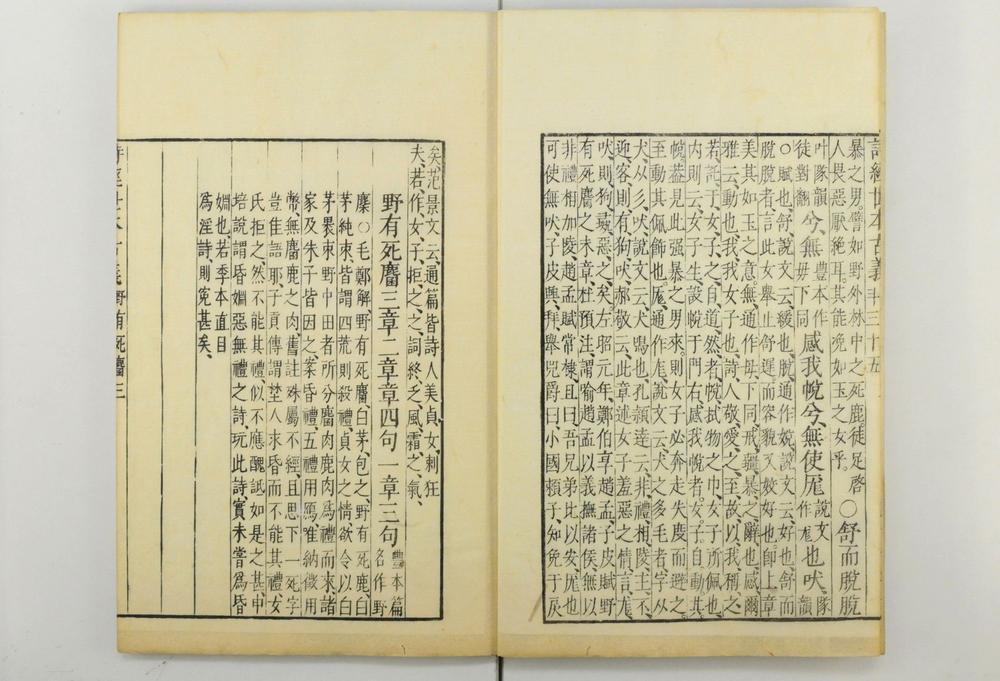 詩經世本古義 十三 十五
暴之男譬如野外林中之死鹿徒足啓
人畏惡厭絕耳其能浼如玉之女乎。○舒而脫脫
叶隊韻徒對翻兮無豊本作毋下同感我帨兮無使尨說文作尨也吠隊韻
○賦也舒說文云緩也脫通作娧說文云好也舒而
脫脫者言此女舉止舒遲而容貌又姣好也即上章
美其如玉之意無通作毋下同戒疆暴之辭也感爾
雅云動也我我女子也詩人敬愛之之至故以我稱之
若託于女子之自道然者帨拭物之巾女子所佩也
内則云女子生設帨于門右感我帨者女子自動其
帨蓋見此强暴之男來則女子必奔走失度而遯之
至動其佩飾也尨通作尨說文云犬之多毛者字从
犬从彡吠說文云犬鳴也孔穎達云非禮相陵主不
迎客則有狗吠郝敬云此章述女子羞惡之情言尨
吠則狗彘惡之矣左昭元年鄭伯享趙孟子皮賦野
有死麕之末章杜預注謂喻趙孟以義撫諸侯無以
非禮相加陵趙孟賦常棣且曰吾兄弟比以安尨也
可使無吠子皮興拜舉兕爵曰小國賴子知免于戾
矣范景文云通篇皆詩人美貞女刺狂
夫若作女子拒之之詞終乏風霜之氣
野有死麕三章二章章四句一章三句豊本篇名作野
麇○毛鄭解野有死麕白茅包之野有死鹿白
茅純束皆謂四荒則殺禮貞女之情欲令以白
茅裹束野中田者所分麕肉鹿肉爲禮而來諸
家及朱子皆因之案昏禮五禮用鴈唯納徵用
幣無麕鹿之肉舊註殊屬不經且思下一死字
豈佳語耶子貢傳謂埜人求昏而不能其禮女
氏拒之然不能其禮似不應醜詆如是之甚申
培說謂昏婣惡無禮之詩玩此詩實未嘗爲昏
婣也若季本直目
爲淫詩則寃甚矣
詩經世本古義 野有死麕 三